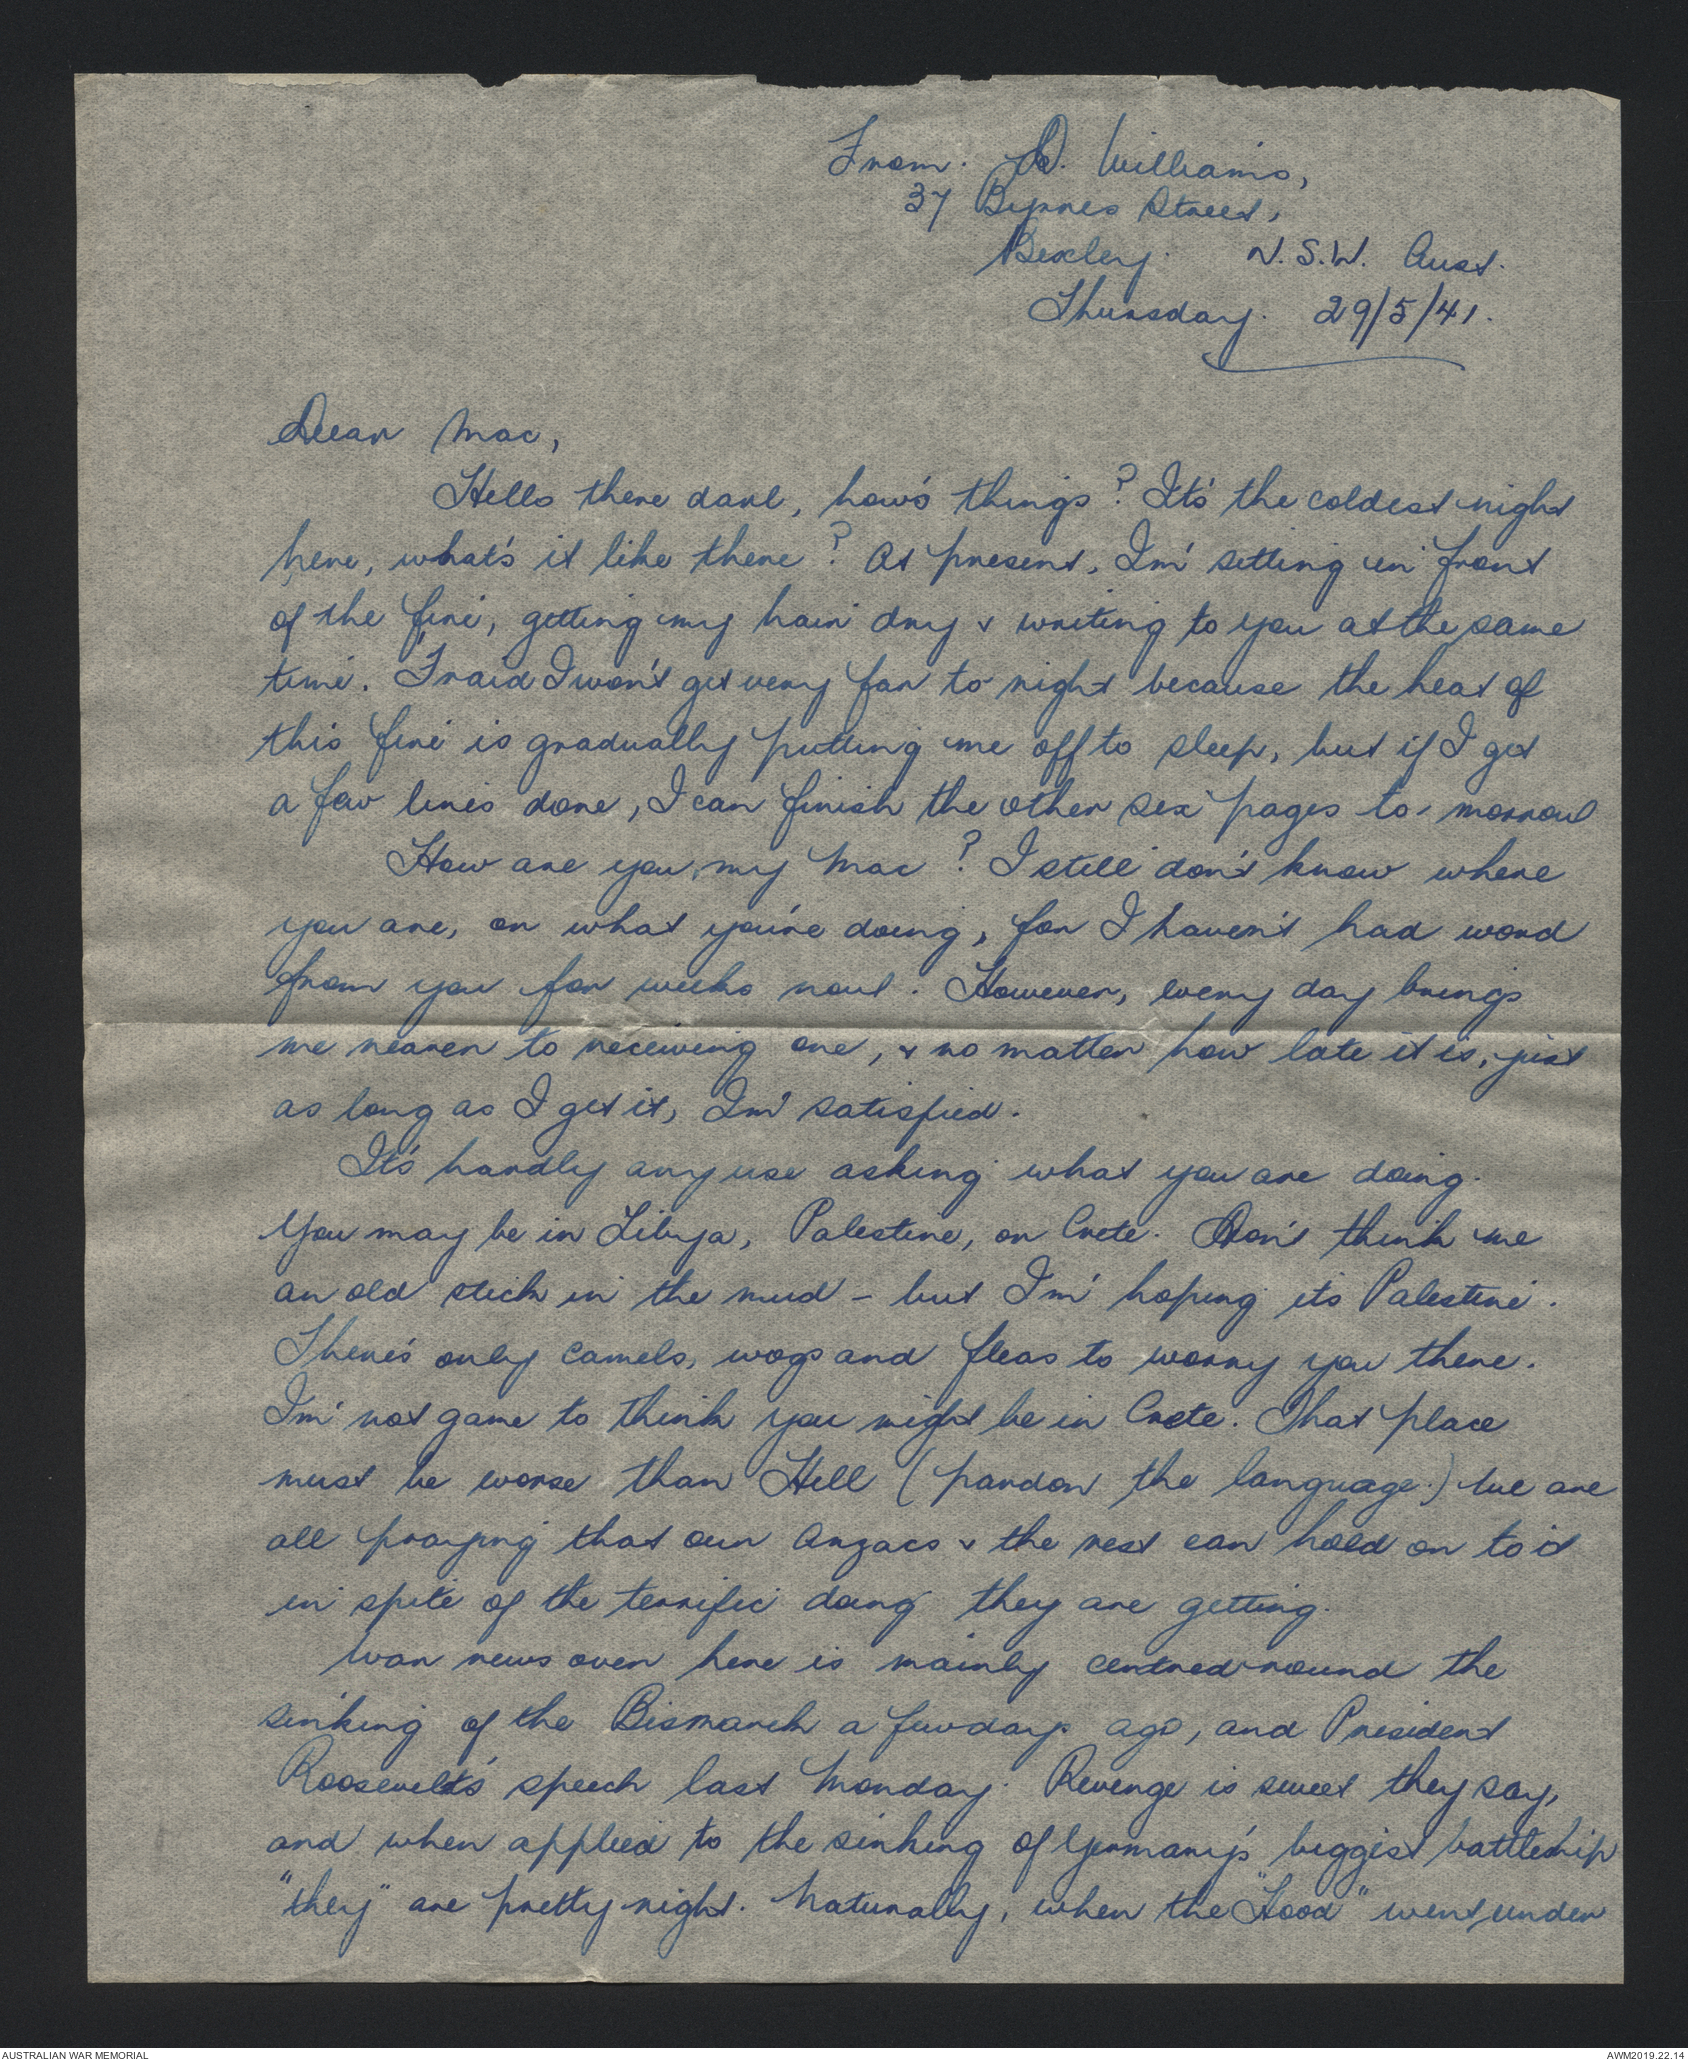 From. D. Williams,
37 Byrnes Street,
Bexley. N.S.W. Aust.
Thursday. 29/5/41.
Dear Mac,
Hello there darl, how's things? It's the coldest night
here, what's it like there? At present, I'm sitting in front
of the fire, getting my hair dry & writing to you at the same
time. 'Fraid I won't get very far to night because the heat of
this fire is gradually putting me off to sleep, but if I get
a few lines done, I can finish the other six pages to-morrow
How are you, my Mac? I still don't know where
you are, or what you're doing, for I haven't had word
from you for weeks now. However, every day brings
me nearer to receiving one, & no matter how late it is, just
as long as I get it, I'm satisfied.
It's hardly any use asking what you are doing.
You may be in Libya, Palestine, or Crete. Don't think me
an old stick in the mud - but I'm hoping its Palestine.
There's only camels, wogs and fleas to worry you there.
I'm not game to think you might be in Crete. That place
must be worse than Hell (pardon the language.) We are
all praying that our Anzacs & the rest can hold on to it
in spite of the terrific doing they are getting.
War news over here is mainly centred round the
sinking of the Bismarck a few days ago, and President
Roosevelt's speech last Monday. Revenge is sweet they say,
and when applied to the sinking of Germany's biggest battleship
"they" are pretty right. Naturally, when the "Hood" went under
AUSTRALIAN WAR MEMORIAL
AWM2019.22.14